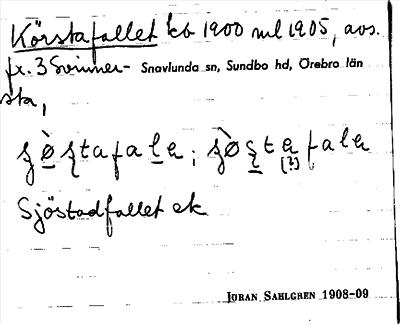 Körstafallet kb 1900 ml 1905, avs.
fr. 3 Svinner- Snavlunda sn, Sundbo hd, Örebro län
sta,
Sjöstadfallet ek
JÖRAN SAHLGREN 1908-09